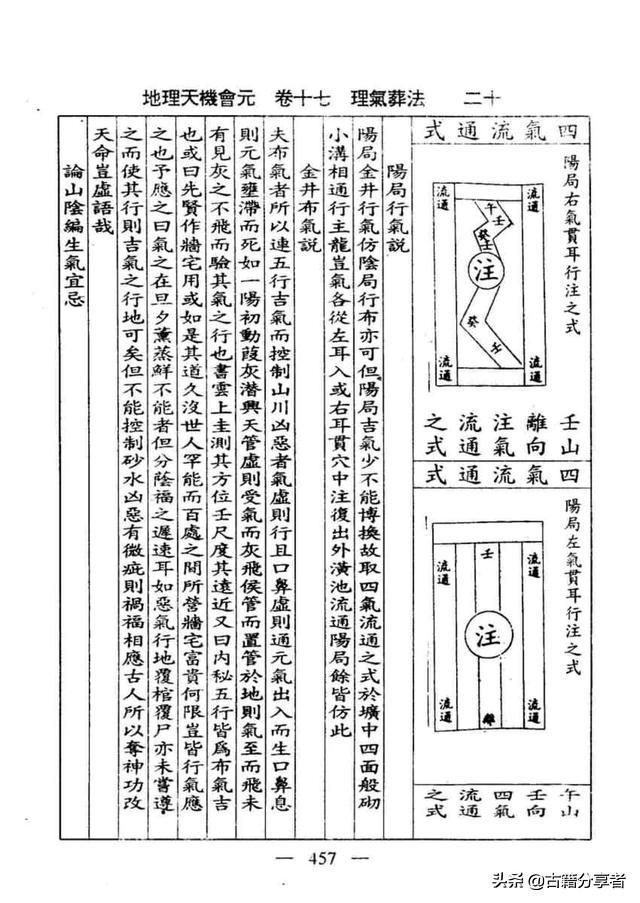 地理天機會元　卷十七　理氣葬法　二十
四氣流通式
陽局右氣貫耳行注之式
流通
流通
午
壬
癸
壬
注
癸
壬
流通
流通
壬山
離向
注氣
流通
之式
四氣流通式
陽局左氣貫耳行注之式
流通
流通
壬
注
流通
流通
午山
壬向
四氣
流通
之式
陽局行氣說
陽局金井行氣仿陰局行布亦可但陽局吉氣少不能博換故取四氣流通之式於壙中四面般砌
小溝相通行主龍豈氣各從左耳入或右耳貫穴中注復出外潢池流通陽局餘皆仿此
金井布氣說
夫布氣者所以連五行吉氣而控制山川凶惡者氣虛則行且口鼻虛則通元氣出入而生口鼻息
則元氣壅滯而死如一陽初動葭灰潛興天管虛則受氣而灰飛侯管而置管於地則氣至而飛未
有見灰之不飛而驗其氣之行也書雲上圭測其方位壬尺度其遠近又曰內秘五行皆為布氣吉
也或曰先賢作牆宅用或如是其道久沒世人罕能而百處之間所營牆宅富貴何限豈皆行氣應
之也予應之曰氣之在旦夕薰蒸鮮不能者但分蔭福之遲速耳如惡氣行地覆棺覆尸亦未嘗遵
之而使其行則吉氣之行地可矣但不能控制砂水凶惡有微疵則禍福相應古人所以奪神功改
天命豈虛語哉
論山陰編生氣宜忌
— 457 —
头条 @古籍分享者